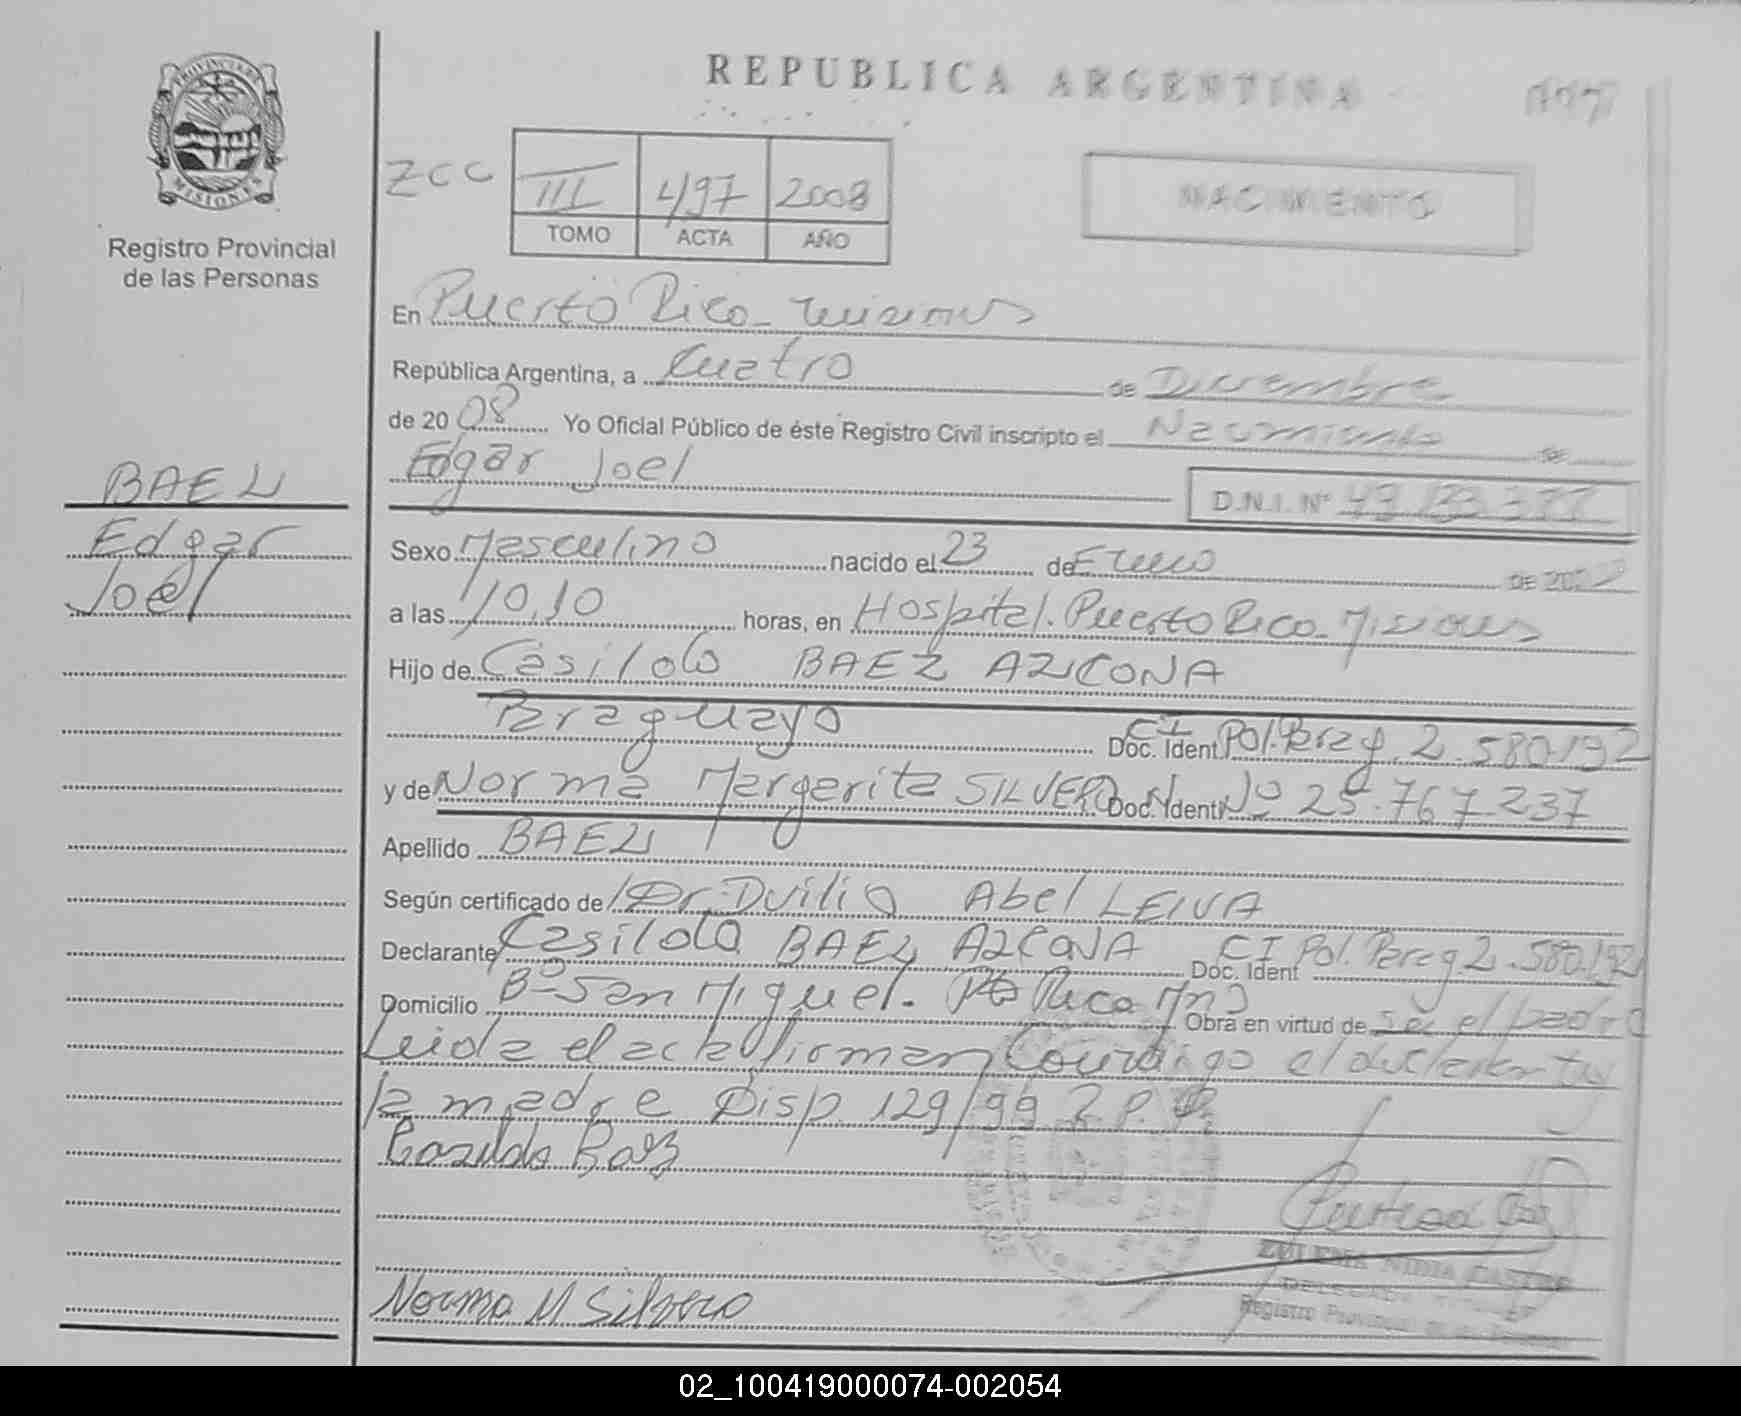 REPUBLICA ARGENTINA
PROVINCIA DE
MISIONES
Registro Provincial
de las Personas
ZCC
III 497 2008
TOMO ACTA AÑO
NACIMIENTO
En Puerto Rico - Misiones
República Argentina, a Cuatro de Diciembre
de 2008 Yo Oficial Público de éste Registro Civil inscripto el Nacimiento de
Edgar Joel
D.N.I. Nº
BAEZ
Edgar
Joel
Sexo Masculino nacido el 23 de Enero DE 20
a las 10,10 horas, en Hospital. Puerto Rico - Misiones
Hijo de Casildo BAEZ AZCONA
Paraguayo Doc. Ident. CI Pol. Parag. 2.580.192
y de Norma Margarita SILVERO Doc. Ident. Nº 25.767.237
Apellido BAEZ
Según certificado de Dr. Duilio Abel LEIVA
Declarante Casildo BAEZ AZCONA Doc. Ident CI Pol. Parag 2.580.192
Domicilio Bº San Miguel. Pto Rico Mnes Obra en virtud de ser el padre
Leida el acta firman conmigo el declarante y
la madre Disp. 129/99 R.P.P.
Casildo Baez
ZULEMA NIDIA CASTRO
Registro Provincial de las Personas
Norma M Silvero
02_100419000074-002054